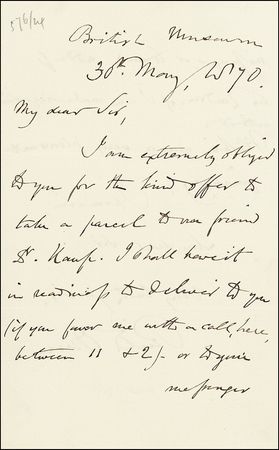 British Museum
30th May, 1870.
My dear Sir,
I am extremely obliged
to you for the kind offer to
take a parcel to our friend
Dr. Kaup. I shall have it
in readiness to deliver to you
(if you favor me with a call, here,
between 11 & 2). or to your
messenger